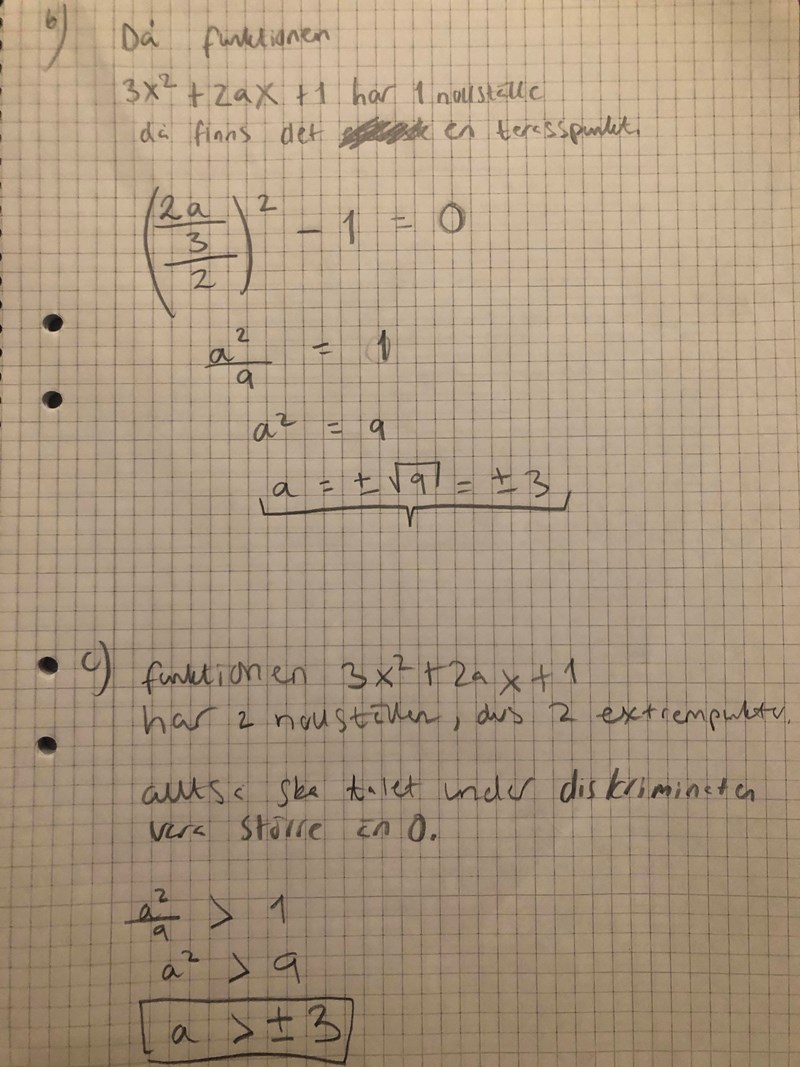 b) Då funktionen
3x² + 2ax + 1 har 1 nollställe
då finns det en terasspunkt.
((2a/3)/2)² - 1 = 0
a²/9 = 1
a² = 9
a = ±√9 = ±3
c) funktionen 3x² + 2ax + 1
har 2 nollställen, dvs 2 extrempunkter.
alltså ska talet under diskriminaten
vara större än 0.
a²/9 > 1
a² > 9
a > ±3